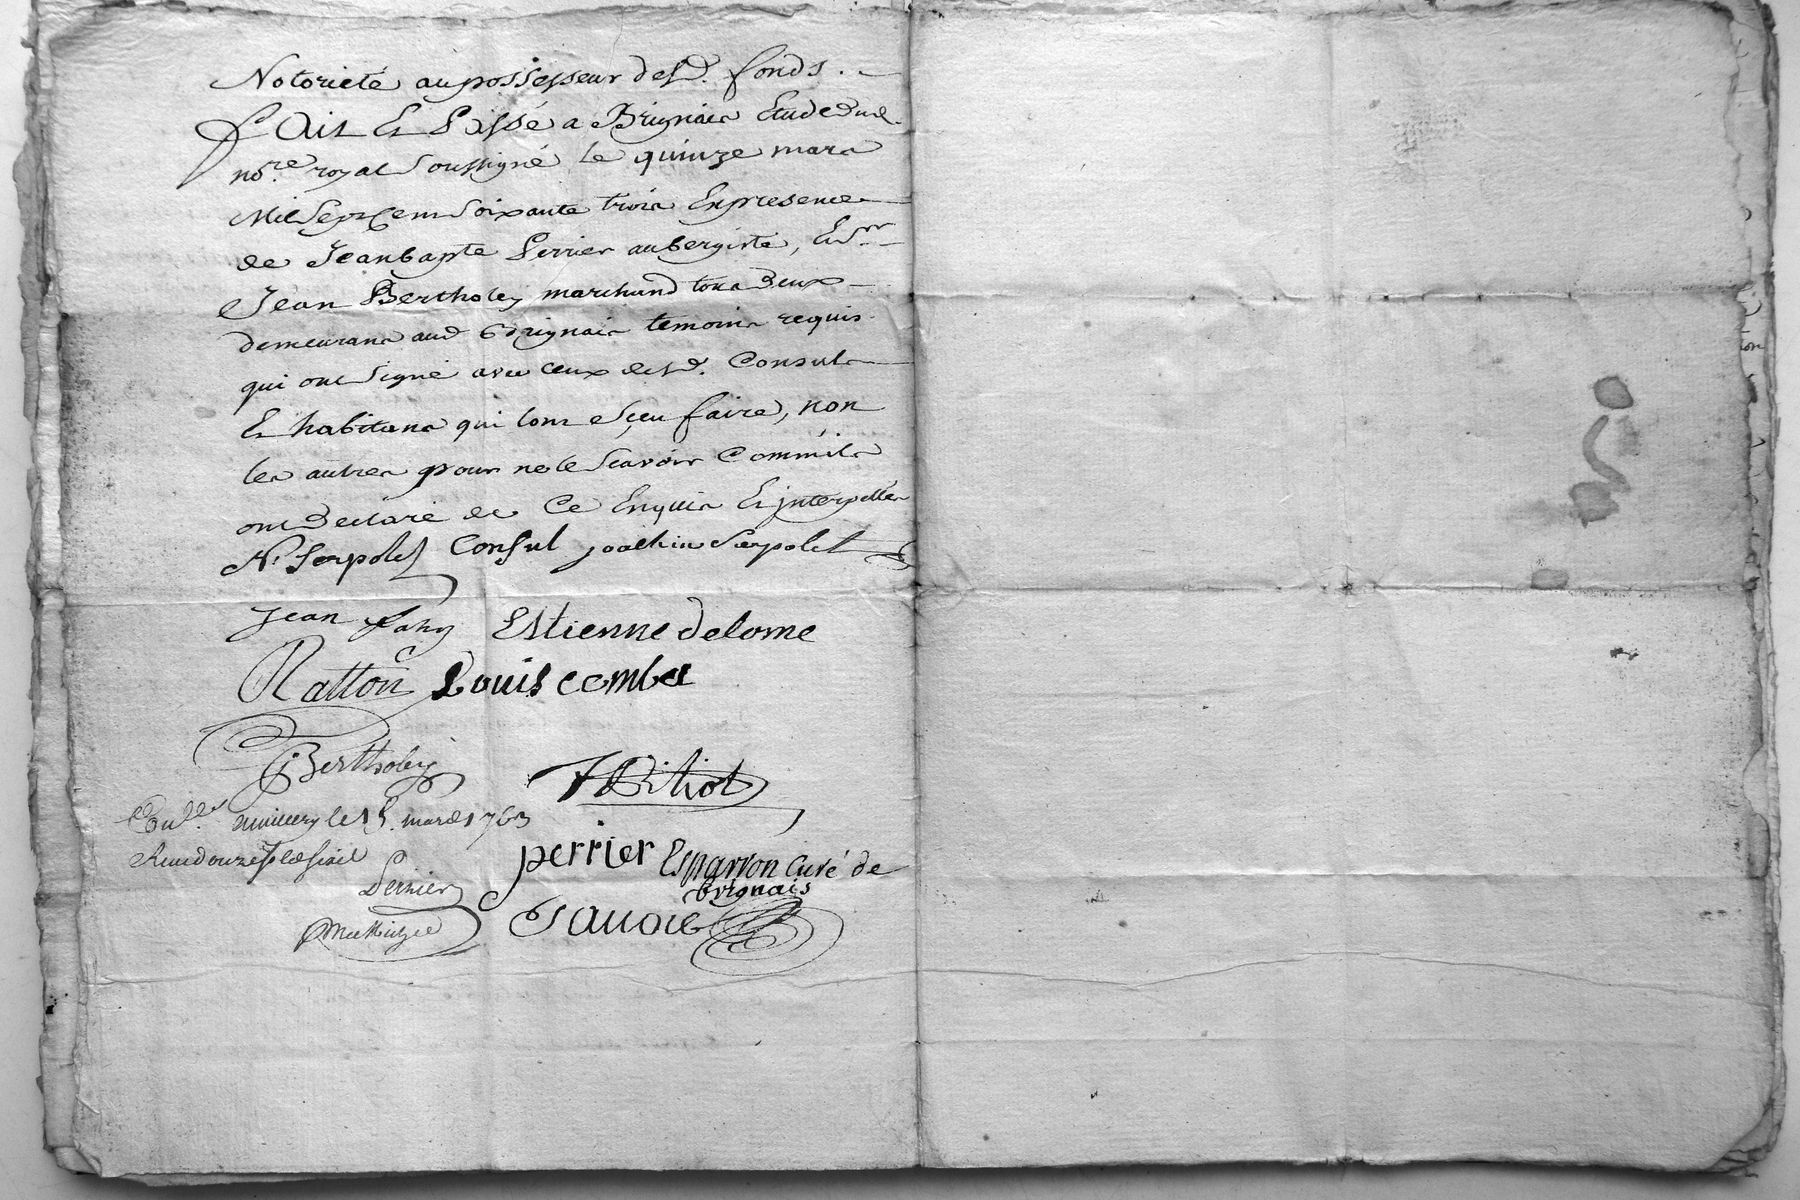 Notorieté au possesseur desd. fonds. —
fait Et Passé a Brignais Etude dud.
nore. royal soussigné le quinze mars
Mil sept Cent soixante trois En presence
de Jean bapte Perrier aubergiste, Et Sr.
Jean Bertholey marchand tous deux
demeurans aud Brignais temoins requis
qui ont signé avec ceux desd. Consuls
Et habitans qui lont sçeu faire, non
les autres pour ne le scavoir Comm'ils
ont declaré de Ce Enquis Et jnterpellés
N. Serpolet Consul joachin Serpolet
Jean Estienne delorme
Ratton Louis combe
Bertholey
Thiliol
le 15. mars 1763
perrier Esparron Curé de
brignais
Savoie